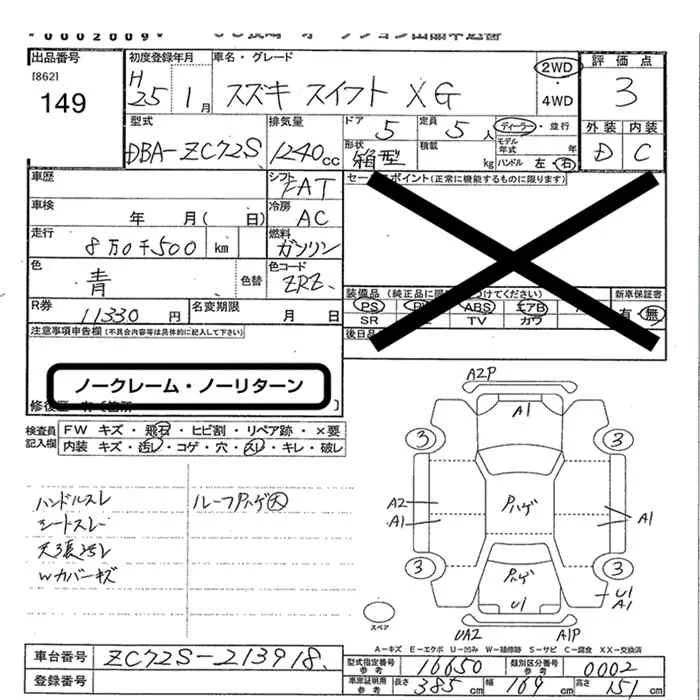 00002009
出品番号 初度登録年月 車名・グレード 2WD 評価点
[862] H 25 1月 スズキ スイフト XG ・ 3
149 4WD
型式 排気量 ドア 5 定員 5人 ディーラー・並行 外装 内装
DBA-ZC72S 1240cc 形状 箱型 積載 kg モデル年式 年 D C
ハンドル 左・右
車歴 シフト FAT セールスポイント(正常に機能するものに限ります)
車検 年 月( 日) 冷房 AC
走行 8万0千500 km 燃料 ガソリン
色 青 色替 色コード ZRZ
R券 11330円 名変期限 月 日 装備品(純正品に限 つけてください) 新車保証書
PS ABS エアB 有・無
SR TV カワ
注意事項申告欄(不具合内容等は具体的に記入して下さい) 後日品
ノークレーム・ノーリターン
修復歴 有(箇所 )
検査員記入欄 FW キズ・飛石・ヒビ割・リペア跡・×要
内装 キズ・汚レ・コゲ・穴・スレ・キレ・破レ
ハンドルスレ ルーフPハゲ大
シートスレ
天張汚レ
Wカバーキズ
A2P
A1
3 3
A2 Pハゲ
A1 A1
3 Pハゲ 3
U1 U1
A1
スペア UA2 A1P
A-キズ E-エクボ U-凹み W-補修跡 S-サビ C-腐食 XX-交換済
車台番号 ZC72S-213918 型式指定番号 参考 16650 類別区分番号 参考 0002
登録番号 車庫証明用 参考 長さ 385cm 幅 169cm 高さ 151cm